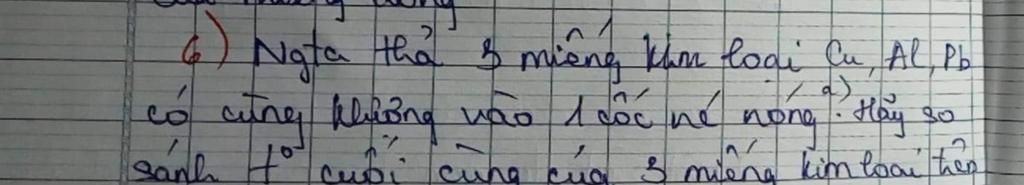 6) Ngta thả 3 miếng kim loại Cu, Al, Pb
có cùng khlượng vào 1 cốc nc nóng. a) Hãy so
sánh t° cuối cùng của 3 miếng kim loại trên